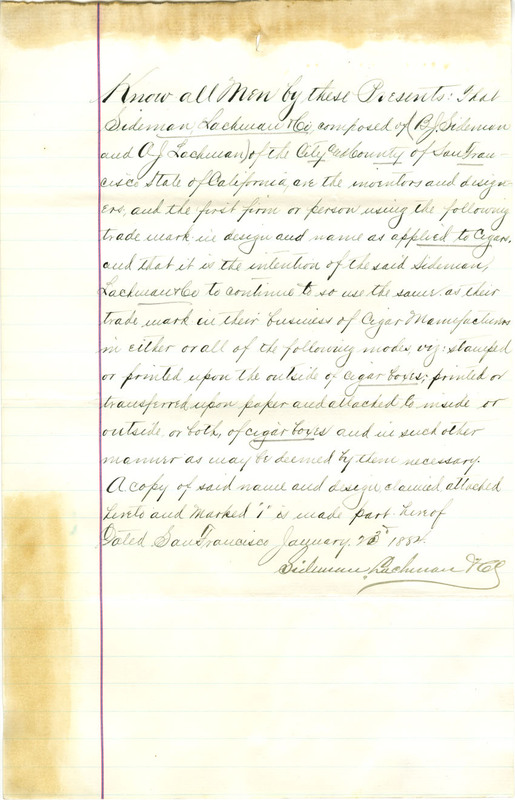 Know all Men by these Presents: That
Sideman, Lachman & Co, composed of (B.J. Sideman
and A J Lachman) of the City and County of San Fran-
cisco State of California, are the inventors and design-
ers, and the first firm or person using the following
trade mark in design and name as applied to Cigars.
and that it is the intention of the said Sideman,
Lachman & Co to continue to so use the same as their
trade mark in their business of Cigar Manufacturers
in either or all of the following modes, viz: stamped
or printed upon the outside of cigar boxes; printed or
transferred upon paper and attached to inside or
outside, or both, of cigar boxes and in such other
manner as may be deemed by them necessary.
A copy of said name and design claimed attached
hereto and Marked "1" is made part hereof
Dated San Francisco January 1882.
Sideman, Lachman & Co